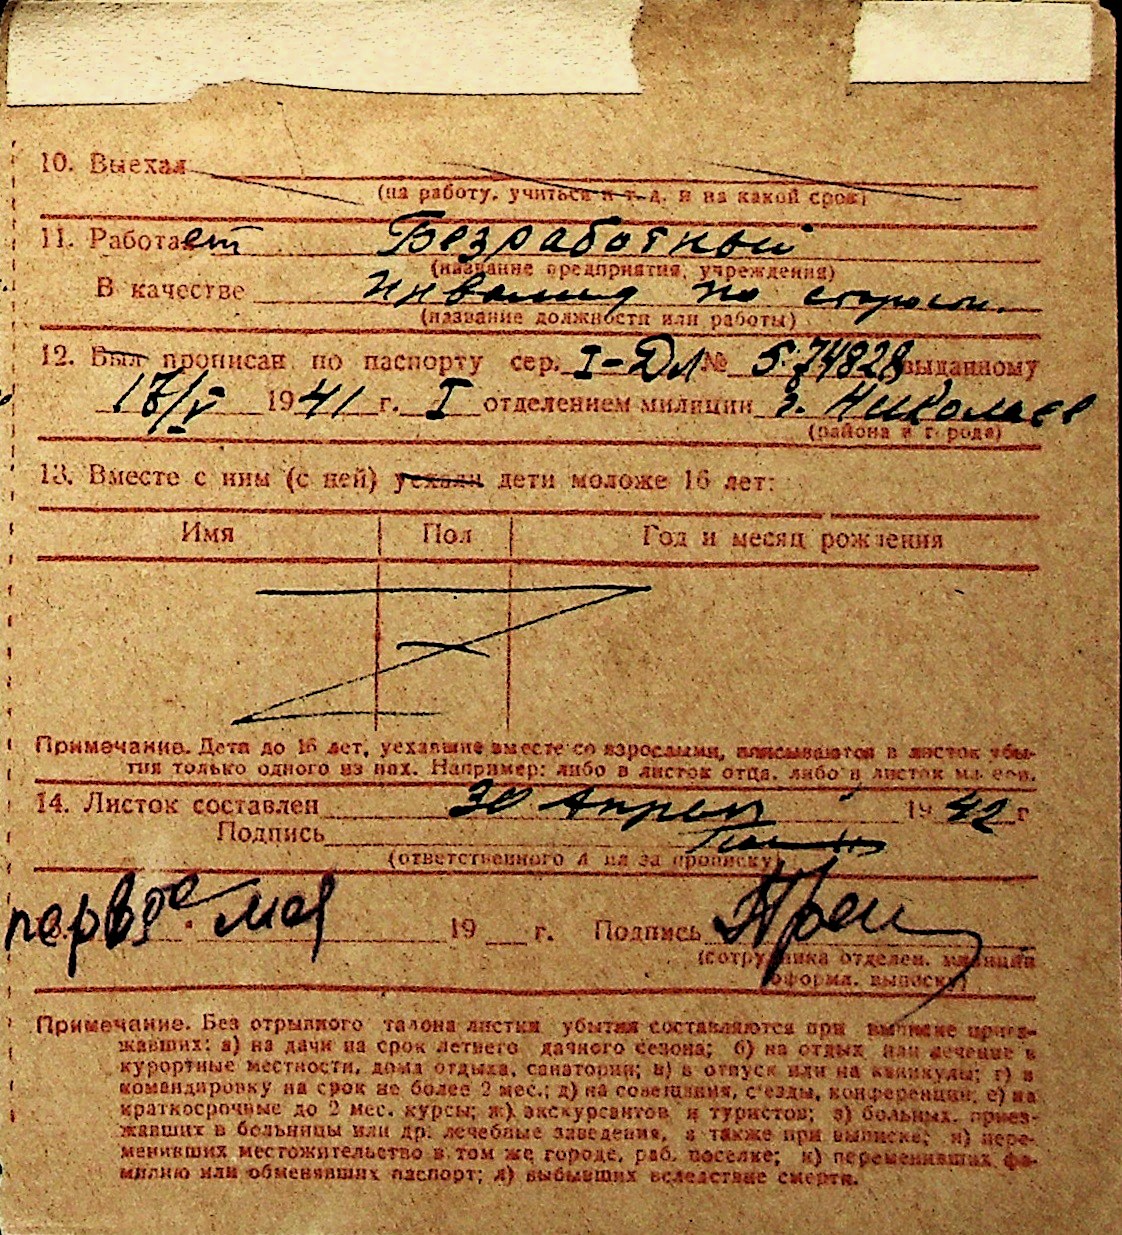 10. Выехал
(на работу, учиться и т. д. и на какой срок)
11. Работает Безработный
(название предприятия, учреждения)
В качестве Инвалид по старости.
(название должности или работы)
12. Был прописан по паспорту сер. I-ДЛ № 574828 выданному
17/V 1941 г. I отделением милиции г. Николаев
(района и города)
13. Вместе с ним (с ней) уехали дети моложе 16 лет:
Имя Пол Год и месяц рождения
Примечание. Дети до 16 лет, уехавшие вместе со взрослыми, вписываются в листок убы-
тия только одного из них. Например: либо в листок отца, либо в листок матери.
14. Листок составлен 30 Апреля 1942 г
Подпись
(ответственного лица за прописку)
первое мая 19 г. Подпись
(сотрудника отделен. милиции
оформ. выписку)
Примечание. Без отрывного талона листки убытия составляются при выписке приез-
жавших: а) на дачи на срок летнего дачного сезона; б) на отдых или лечение в
курортные местности, дома отдыха, санатории; в) в отпуск или на каникулы; г) в
командировку на срок не более 2 мес.; д) на совещания, съезды, конференции; е) на
краткосрочные до 2 мес. курсы; ж) экскурсантов и туристов; з) больных, приез-
жавших в больницы или др. лечебные заведения, а также при выписке; и) пере-
менивших местожительство в том же городе, раб. поселке; к) переменивших фа-
милию или обменявших паспорт; л) выбывших вследствие смерти.